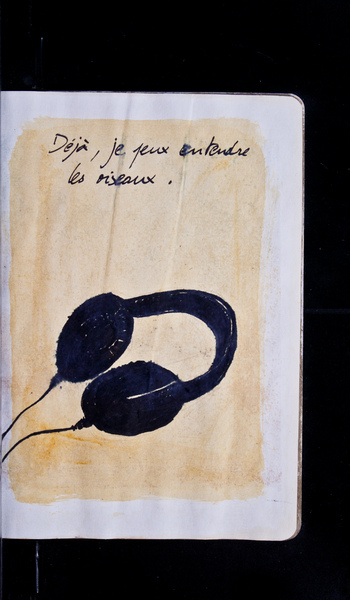 Déjà, je peux entendre
les oiseaux.